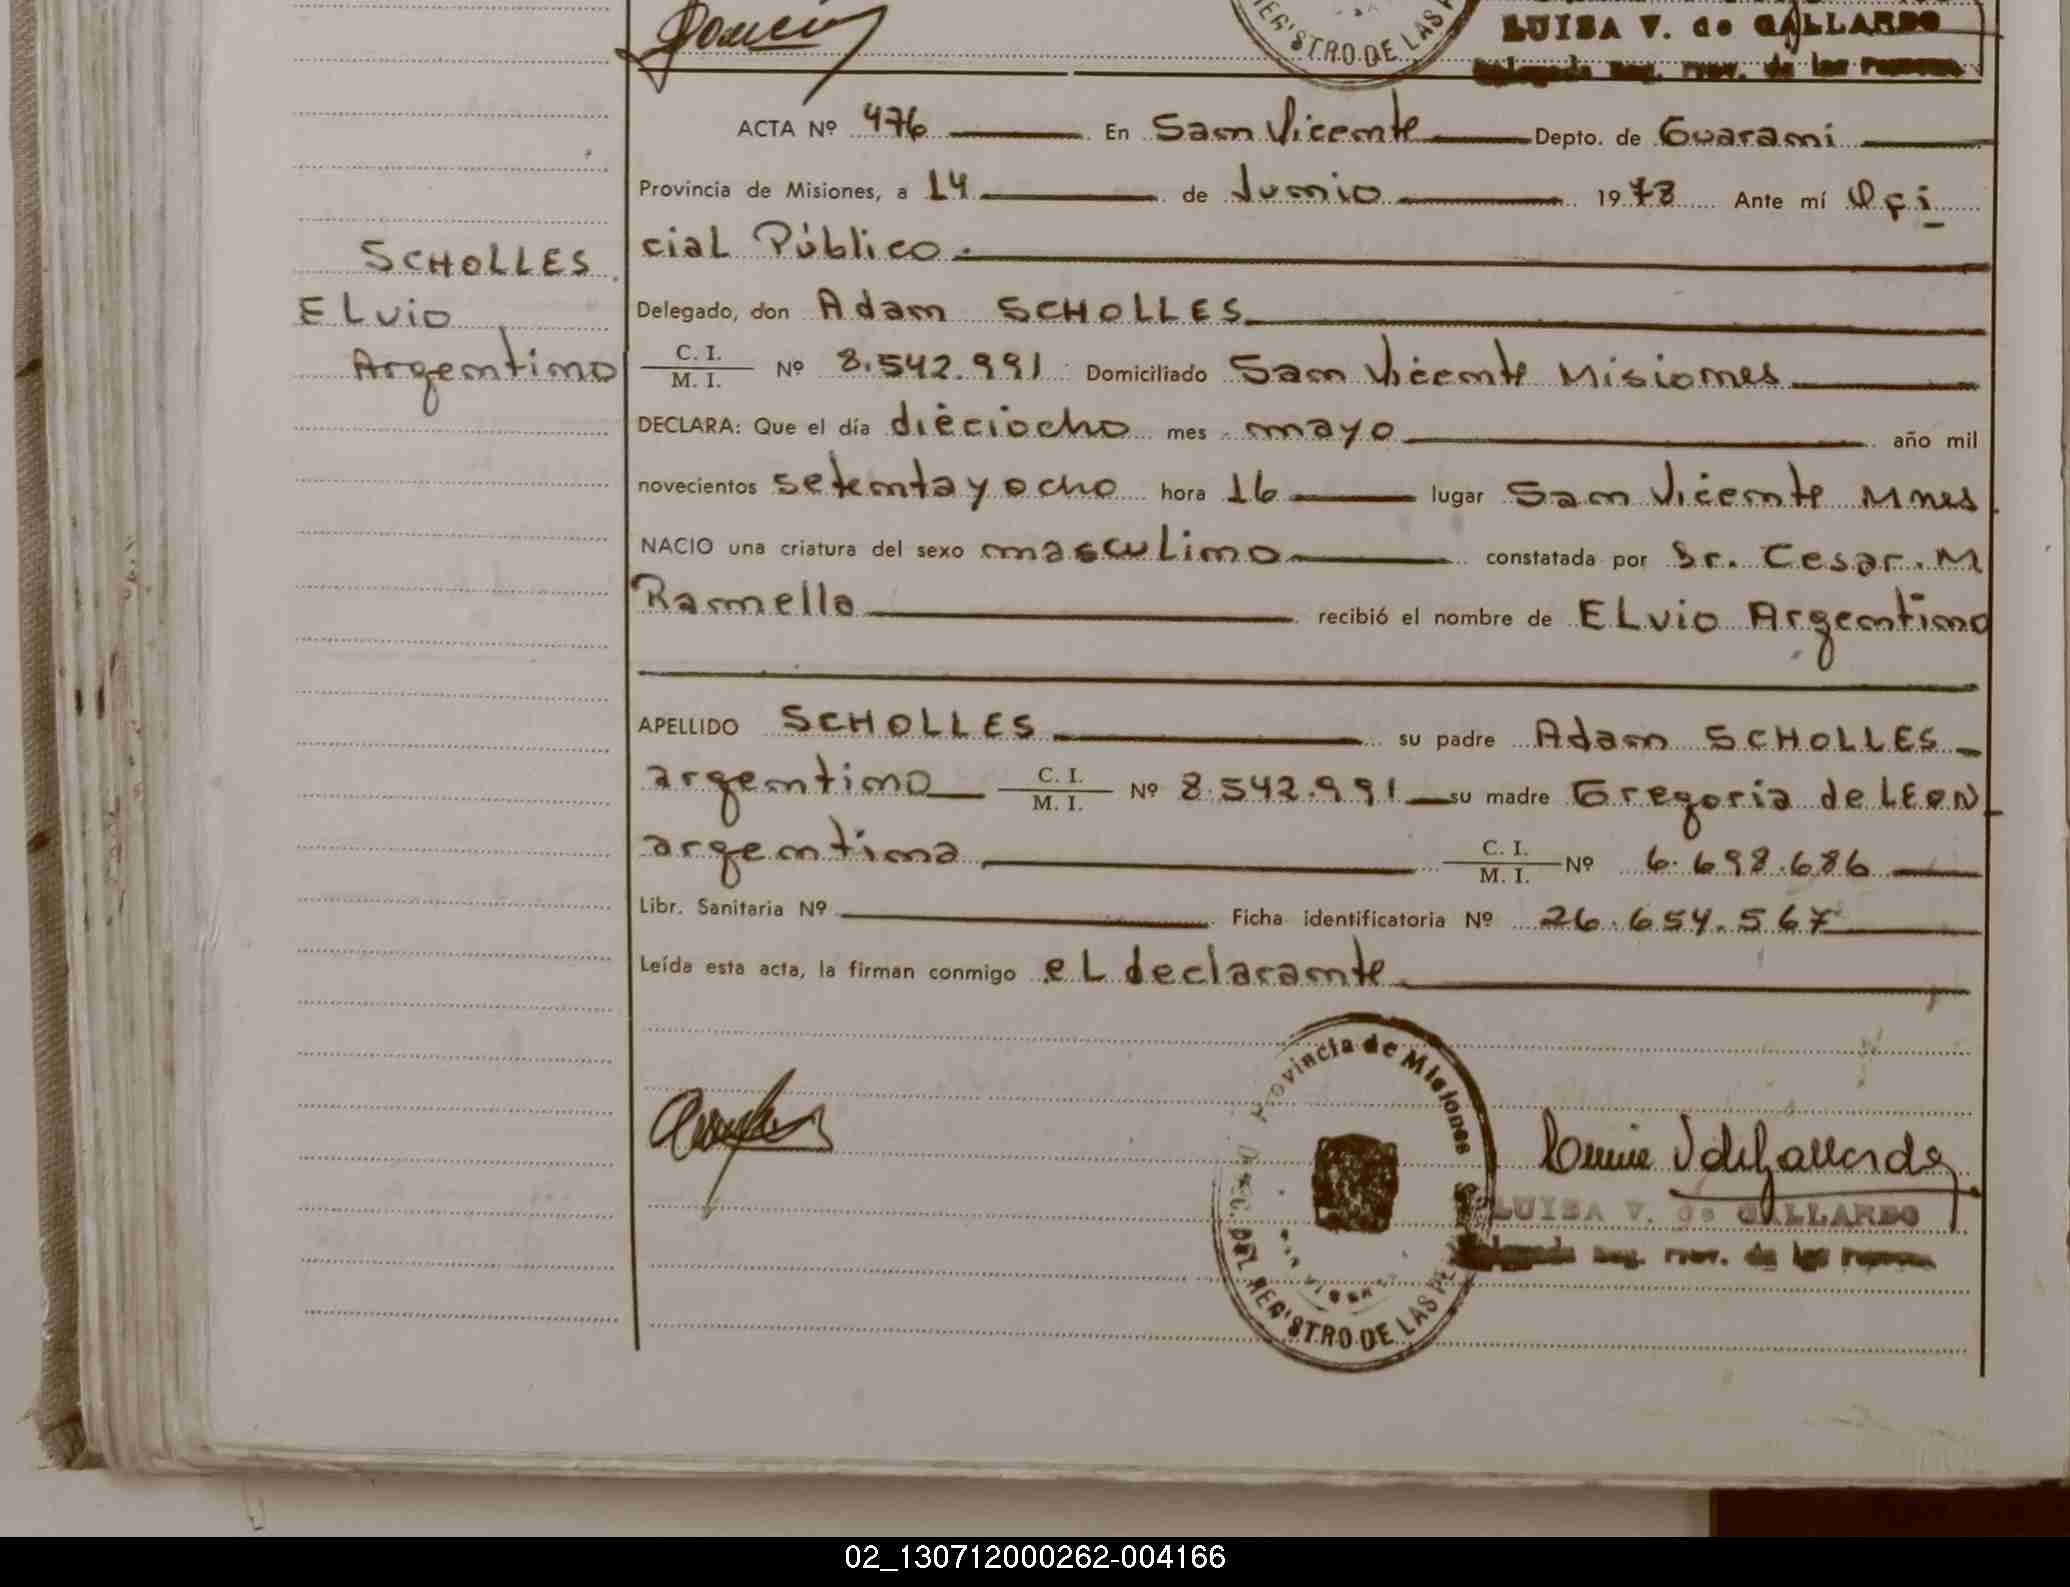 REGISTRO DE LAS P
LUISA V. de GALLARDO
Delegada Reg. Prov. de las Personas
ACTA Nº 476 En San Vicente Depto. de Guarani
Provincia de Misiones, a 14 de Junio 1978 Ante mí Ofi
cial Público.
SCHOLLES
ELvio
Argentino
Delegado, don Adam SCHOLLES
C. I.
M. I. Nº 8.542.991 Domiciliado San Vicente Misiones
DECLARA: Que el día dieciocho mes mayo año mil
novecientos setenta y ocho hora 16 lugar San Vicente Mnes
NACIO una criatura del sexo masculino constatada por Dr. Cesar. M
Ramella recibió el nombre de ELvio Argentino
APELLIDO SCHOLLES su padre Adam SCHOLLES
argentino C. I.
M. I. Nº 8.542.991 su madre Gregoria de LEON
argentina C. I.
M. I. Nº 6.698.686
Libr. Sanitaria Nº Ficha identificatoria Nº 26.654.567
Leída esta acta, la firman conmigo eL declarante
Provincia de Misiones
DEL REGISTRO DE LAS PE
LUISA V. de GALLARDO
Delegada Reg. Prov. de las Personas
02_130712000262-004166